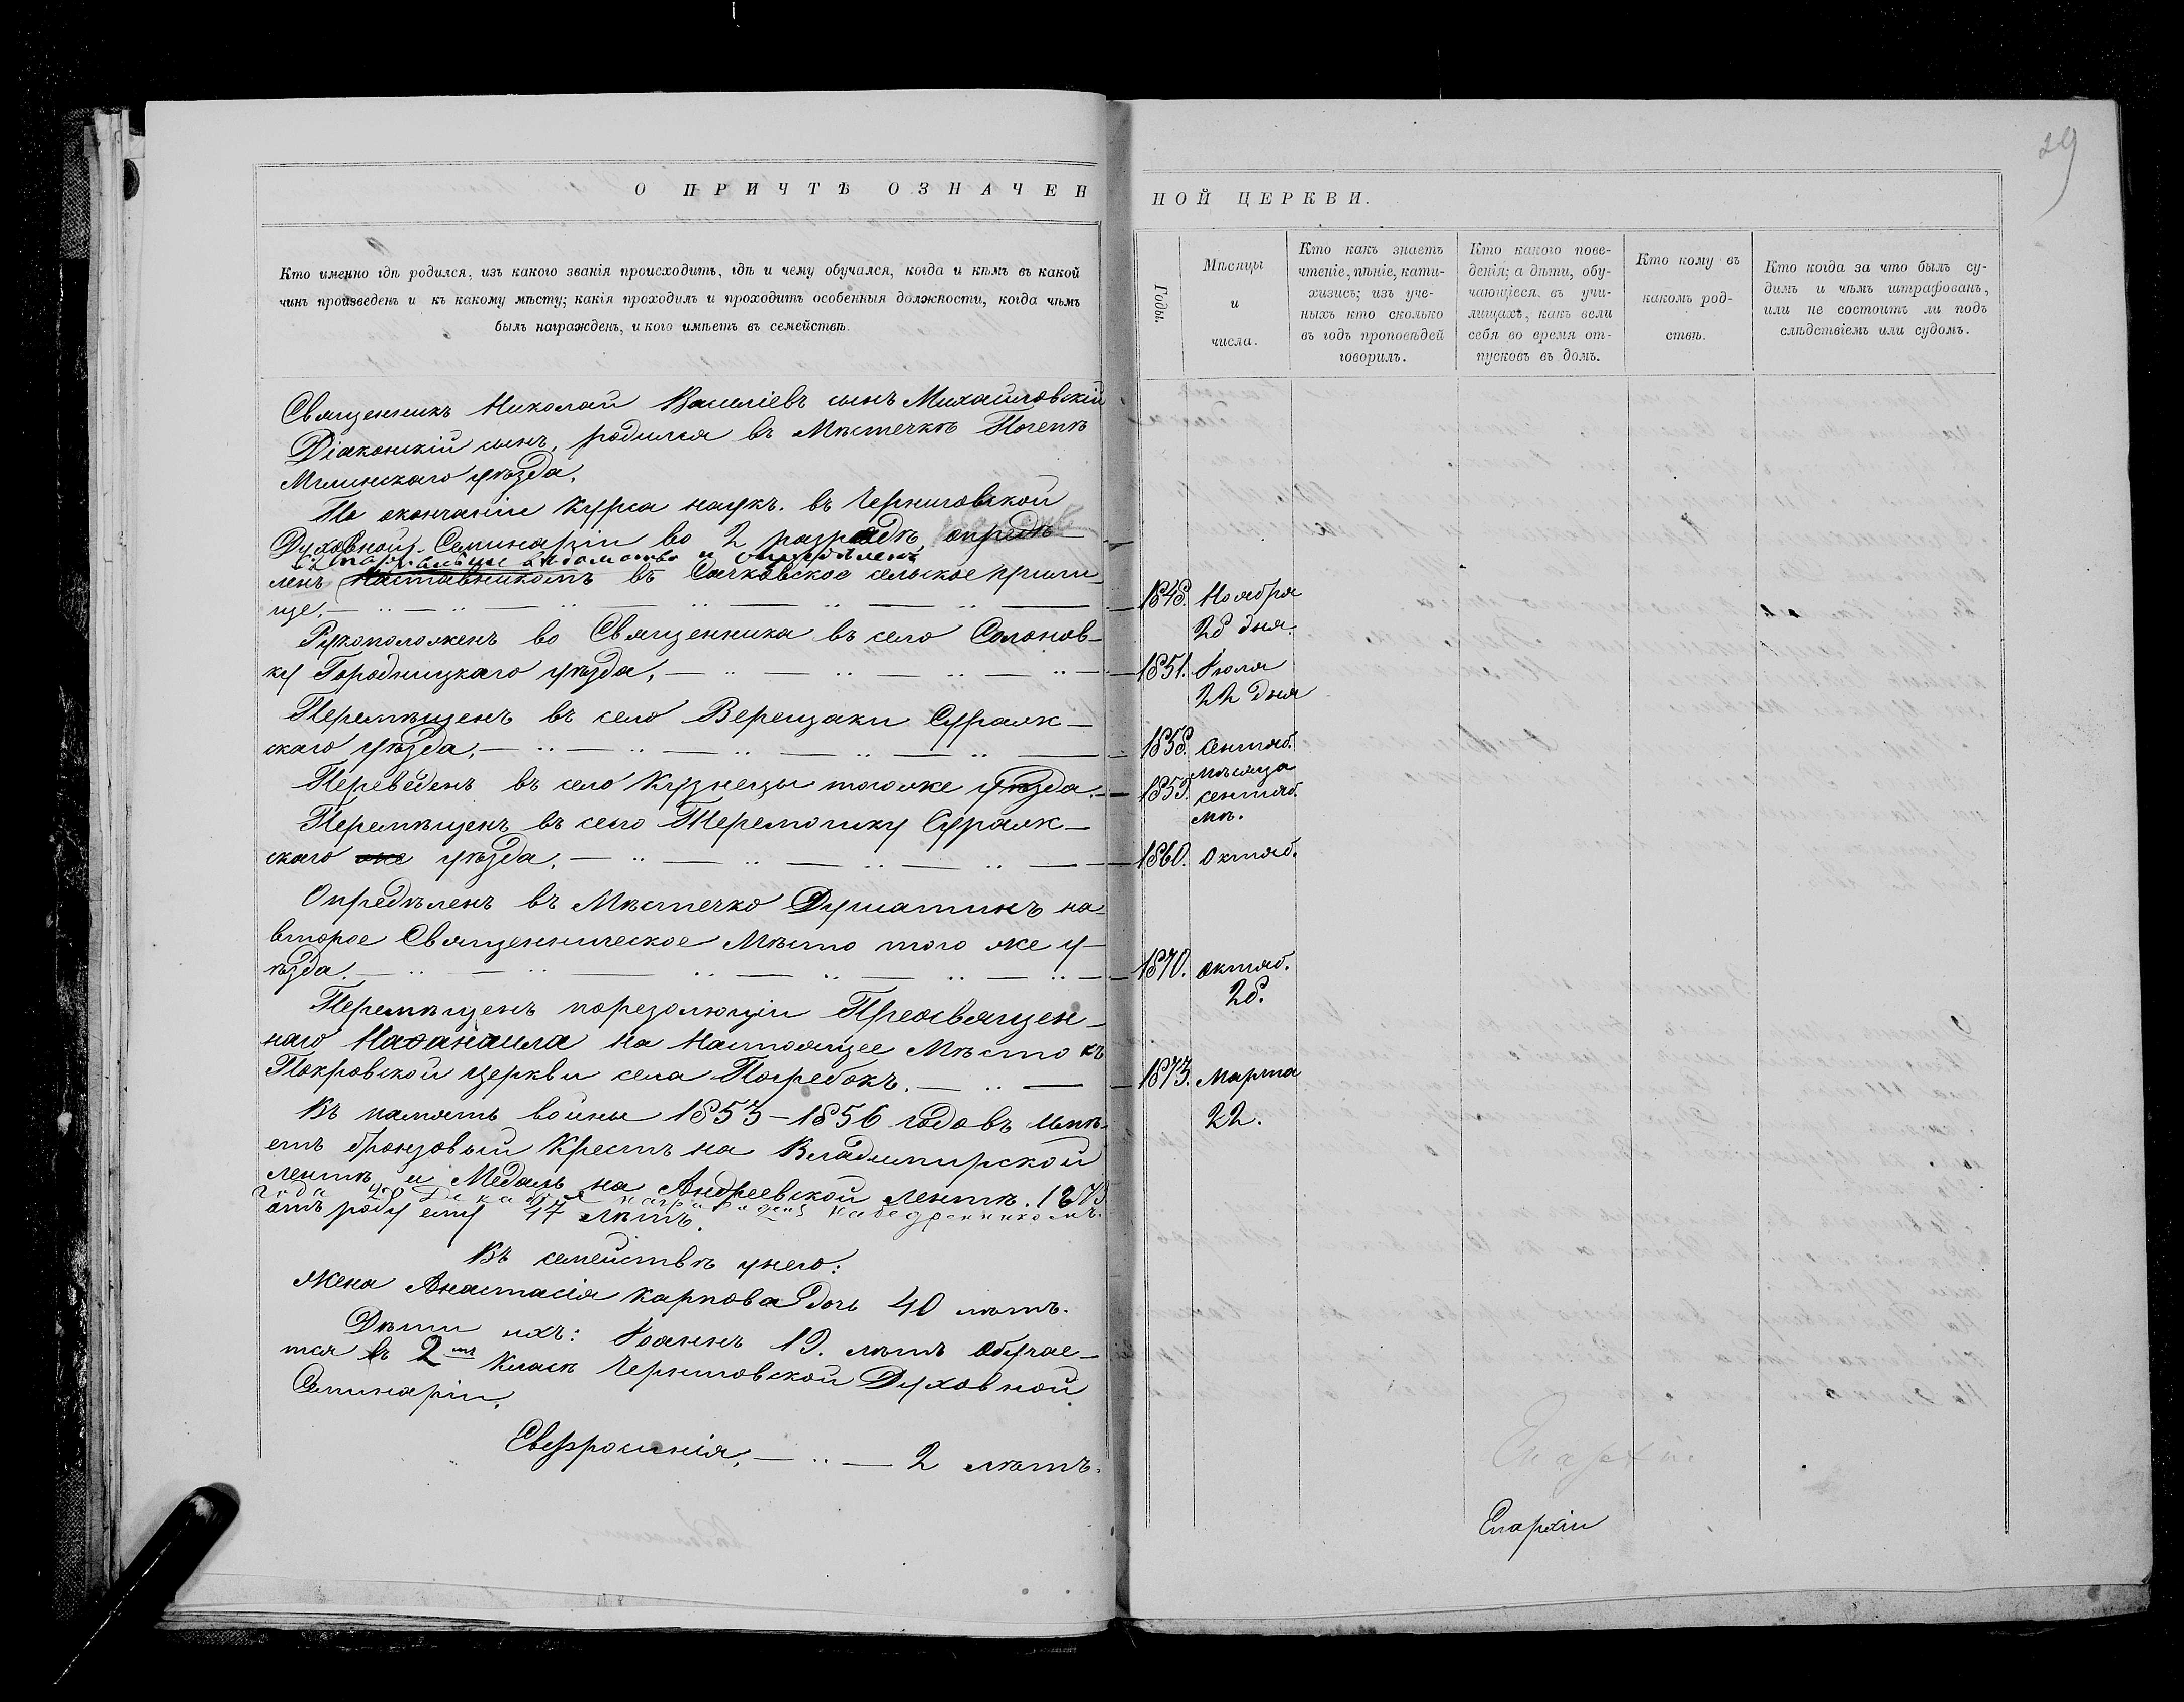 29
О ПРИЧТѢ ОЗНАЧЕН
НОЙ ЦЕРКВИ.
Кто именно гдѣ родился, изъ какого званія происходитъ, гдѣ и чему обучался, когда и кѣмъ въ какой
чинъ произведенъ и къ какому мѣсту; какія проходилъ и проходитъ особенныя должности, когда чѣмъ
былъ награжденъ, и кого имѣетъ въ семействѣ.
Годы.
Мѣсяцы
и
числа.
Кто какъ знаетъ
чтеніе, пѣніе, кати-
хизисъ; изъ уче-
ныхъ кто сколько
въ годъ проповѣдей
говорилъ.
Кто какого пове-
денія; а дѣти, обу-
чающіеся въ учи-
лищахъ, какъ вели
себя во время от-
пусковъ въ домъ.
Кто кому въ
какомъ род-
ствѣ.
Кто когда за что былъ су-
димъ и чѣмъ штрафованъ,
или не состоитъ ли подъ
слѣдствіемъ или судомъ.
Священникъ Николай Василіевъ сынъ Михайловскій
Діаконскій сынъ, родился въ Мѣстечкѣ Почепѣ
Мглинскаго уѣзда.
По окончаніи Курса наукъ въ Черниговской
Духовной Семинаріи во 2 разрядѣ опредѣ
ленъ Наставникомъ въ Сачковское сельское училищ
ще.
1848. Ноября
28 дня.
Рукоположенъ во Священника въ село Солонов-
ку Городницкаго уѣзда,
1851. Іюля
22 дня
Перемѣщенъ въ село Верещаки Суражс-
каго уѣзда,
1858. Сентяб.
мѣсяца
Переведенъ въ село Кузнецы тогоже уѣзда.
1859. сентяб.
мѣ.
Перемѣщенъ въ село Перемошку Суражс-
скаго уѣзда.
1860. Октяб.
Опредѣленъ въ Мѣстечко Душатинъ на-
второе Священническое Мѣсто того же у-
ѣзда.
1870. октяб.
28.
Перемѣщенъ порезолюціи Преосвящен-
наго Наѳанаила на Настоящее Мѣсто къ
Покровской церкви села Погребокъ.
1873. Марта
22.
Въ память войны 1853–1856 годовъ имѣ-
етъ бронзовый Крестъ на Владимирской
лентѣ и Медаль на Андреевской лентѣ. 1873
года 28 Декабря награжденъ набедренникомъ.
отъ роду ему 47 лѣтъ.
Въ семействѣ унего:
Жена Анастасія Карпова дочь 40 лѣтъ.
Дѣти ихъ: Іоаннъ 19. лѣтъ обучае-
тся въ 2мъ Класѣ Черниговской Духовной
Семинаріи.
Евфросинія, 2 лѣтъ.
Епархіи
Епархіи